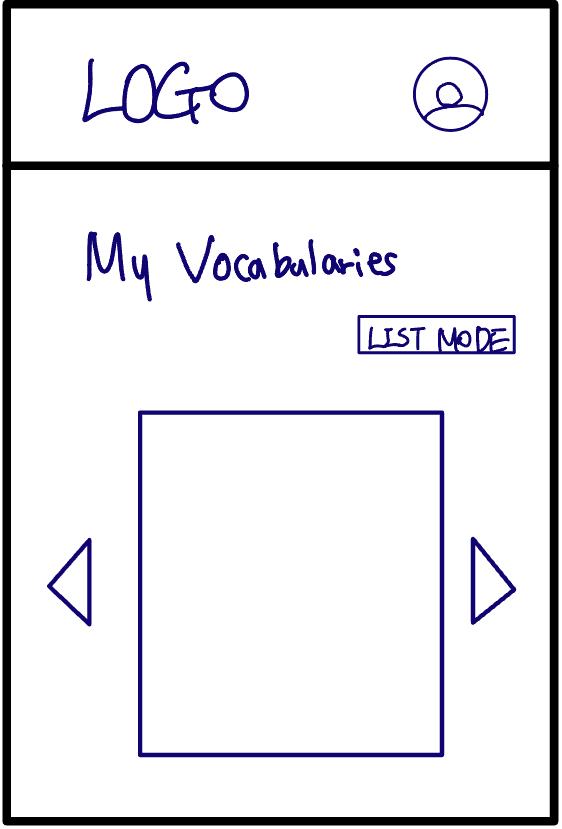 LOGO
My Vocabularies
LIST MODE